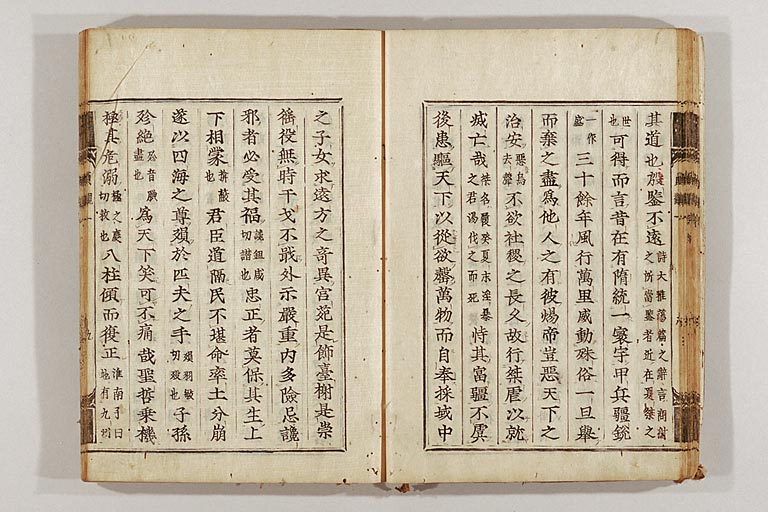 其道也殷鑒不遠詩大雅蕩篇之辭言商紂之所當鑒者近在夏桀之
世也可得而言昔在有隋統一寰宇甲兵彊銳
一作盛三十餘年風行萬里威動殊俗一旦舉
而棄之盡為他人之有彼煬帝豈惡天下之
治安惡烏去聲不欲社稷之長久故行桀虐以就
滅亡哉桀名履癸夏末淫暴之君湯伐之而死恃其富彊不虞
後患驅天下以從欲罄萬物而自奉採域中
之子女求遠方之奇異宮苑是飾臺榭是崇
徭役無時干戈不戢外示嚴重內多險忌讒
邪者必受其福忠正者莫保其生上
下相蒙君臣道隔民不堪命率土分崩
遂以四海之尊殞於匹夫之手子孫
殄絶為天下笑可不痛哉聖哲乗機
拯其危溺八柱傾而復正淮南子曰地有九州